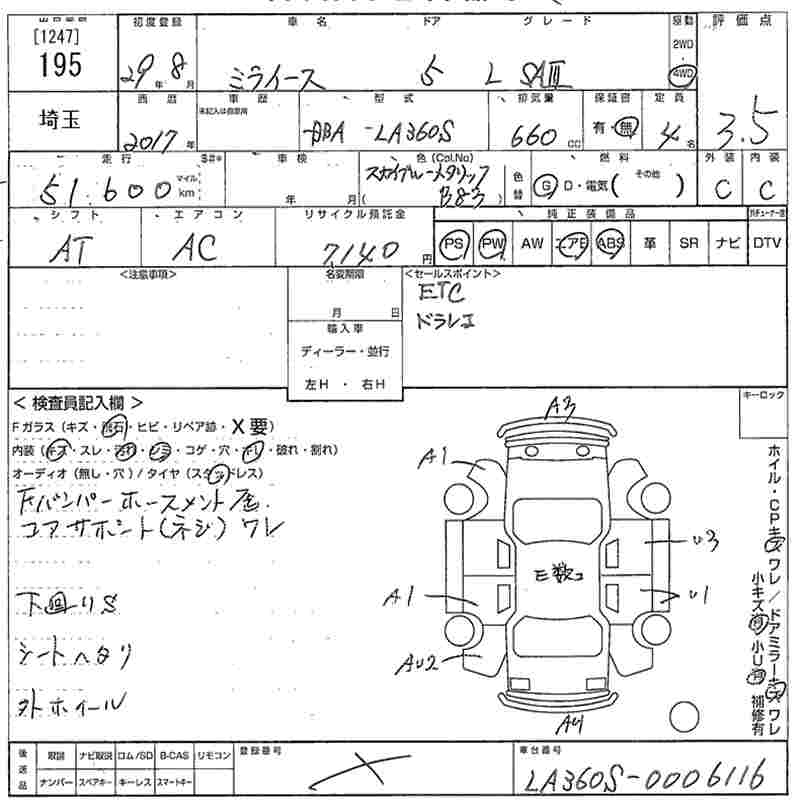 [1247]
195
初度登録 車名 ドア グレード 駆動 評価点
29年8月 ミライース 5 L SAⅢ 2WD 4WD
埼玉
西暦 車歴 型式 排気量 保証書 定員
2017年 DBA -LA360S 660cc 有・無 4名 3.5
走行 車検 色(Col.No) 色替 燃料 外装 内装
51,600 マイル km 年 月 スカイブルーメタリック ( B83 ) G D・電気( その他 ) C C
シフト エアコン リサイクル預託金 純正装備品
AT AC 7,140円 PS PW AW エアB ABS 革 SR ナビ DTV
<注意事項> 名変期限 <セールスポイント>
月 日 ETC
ドラレコ
輸入車
ディーラー・並行
左H ・ 右H
< 検査員記入欄 > キーロック
Fガラス(キズ・飛石・ヒビ・リペア跡・X要)
内装(キズ・スレ・汚れ・シミ・コゲ・穴・キレ・破れ・割れ)
オーディオ(無し・穴)/タイヤ(スタッドレス)
Fバンパーホースメント
コアサポート(ネジ)ワレ
下回りS
シートヘタリ
外ホイール
A3
A1
U3
E数コ
A1
U1
AU2
ホイル・CPキズワレ/ドアミラーキズワレ
小キズ有 小U有 補修有
後送品 取説 ナビ取説 ロム/SD B-CAS リモコン 登録番号 車台番号
ナンバー スペアキー キーレス スマートキー LA360S-0006116